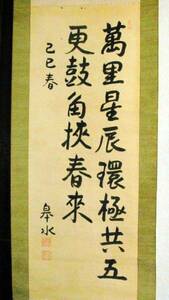 萬里星辰環極共五
更鼓角挾春來
己巳春
皐水